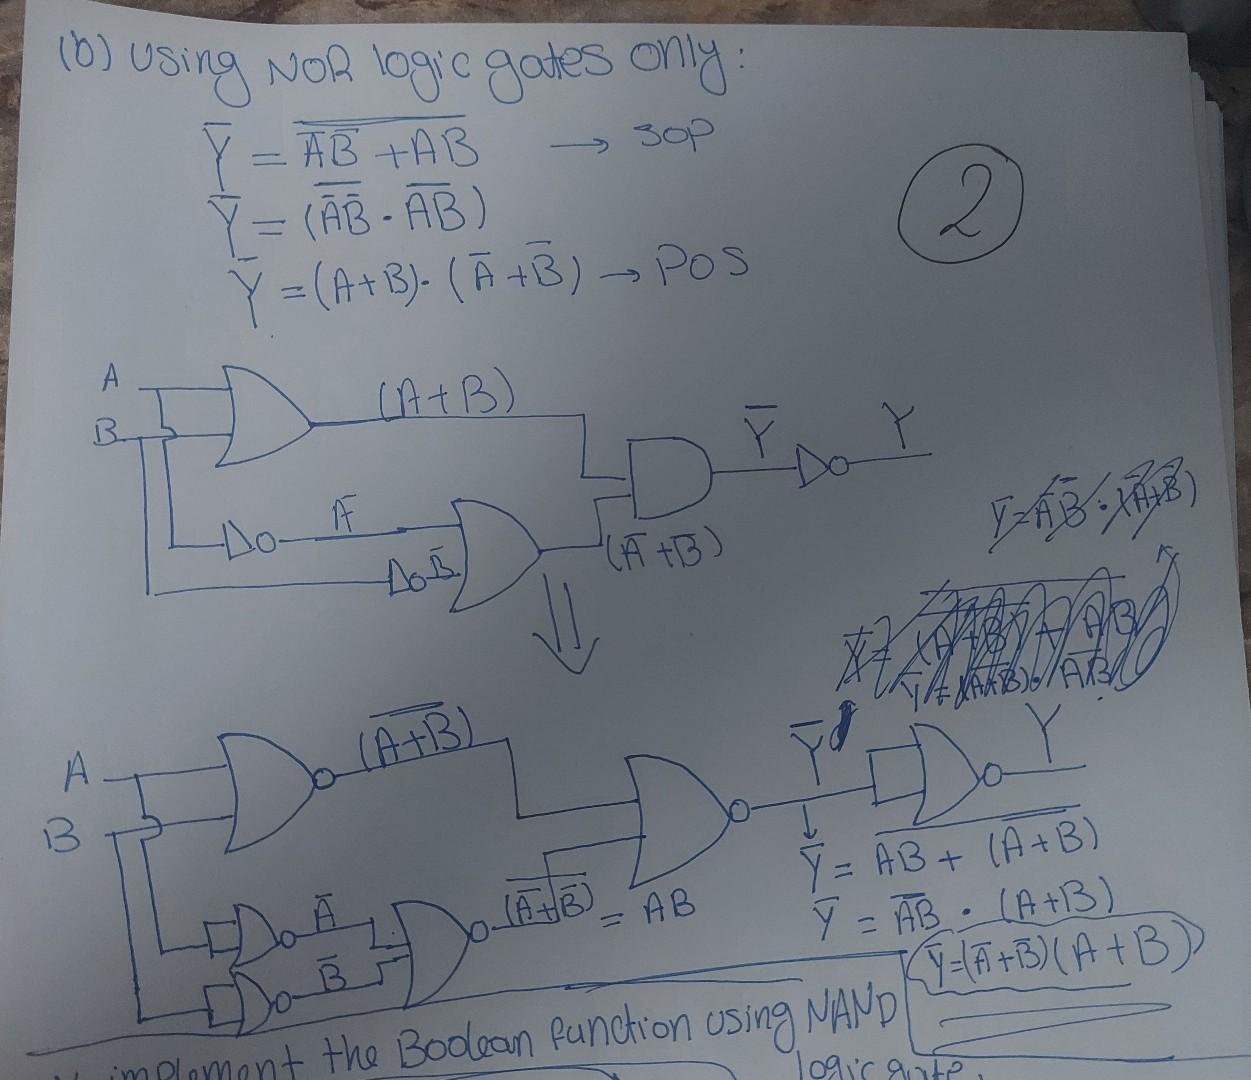 (b) Using NOR logic gates only:
Y̅ = \overline{\overline{A}\,\overline{B} + AB} → SOP
Y̅ = (\overline{\overline{A}\,\overline{B}} · \overline{AB})
Y̅ = (A+B)· (A̅ + B̅) → POS
2
A
B
(A+B)
A̅
B̅
(A̅ + B̅)
Y̅
Y
A
B
\overline{(A+B)}
A̅
B̅
\overline{(A̅+B̅)} = AB
Y̅
Y
Y̅ = \overline{AB + \overline{(A+B)}}
Y̅ = \overline{AB} · (A+B)
Y̅=(A̅+B̅)(A+B)
implement the Boolean function using NAND
logic gate.